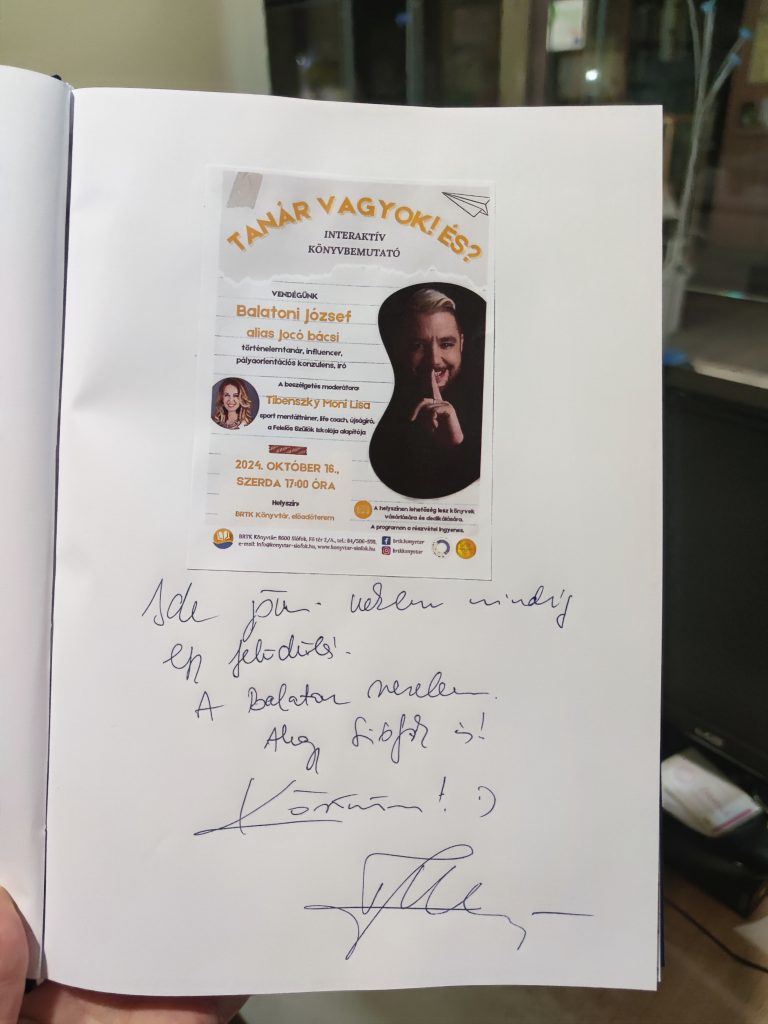 TANÁR VAGYOK! ÉS?
INTERAKTÍV
KÖNYVBEMUTATÓ
VENDÉGÜNK
Balatoni József
alias Jocó bácsi
történelemtanár, influencer,
pályaorientációs konzulens, író
A beszélgetés moderátora:
Tibenszky Moni Lisa
sport mentáltréner, life coach, újságíró,
a Felelős Szülők Iskolája alapítója
2024. OKTÓBER 16.,
SZERDA 17:00 ÓRA
Helyszín:
BRTK Könyvtár, előadóterem
A helyszínen lehetőség lesz könyvek
vásárlására és dedikálására.
A programon a részvétel ingyenes.
BRTK Könyvtár: 8600 Siófok, Fő tér 2/A., tel.: 84/506-591.
e-mail: info@konyvtar-siofok.hu, www.konyvtar-siofok.hu
brtk.konyvtar
brtkkonyvtar
Ide jönni nekem mindig
egy felüdülés.
A Balaton szerelem.
Ahogy Siófok is!
Köszönöm! :)